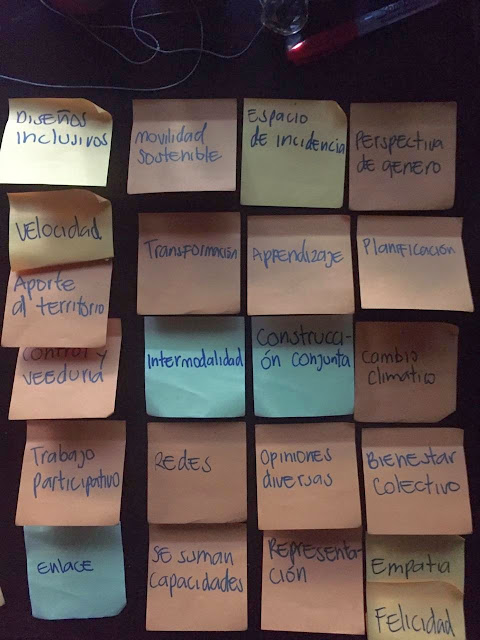 Diseños
inclusivos
movilidad
sostenible
Espacio
de incidencia
Perspectiva
de genero
Velocidad
Transformación
Aprendizaje
Planificación
Aporte
al territorio
Control y
veeduria
Intermodalidad
Construcci-
ón conjunta
Cambio
climatico
Trabajo
participativo
Redes
Opiniones
diversas
Bienestar
colectivo
Enlace
Se suman
capacidades
Representa-
ción
Empatia
Felicidad